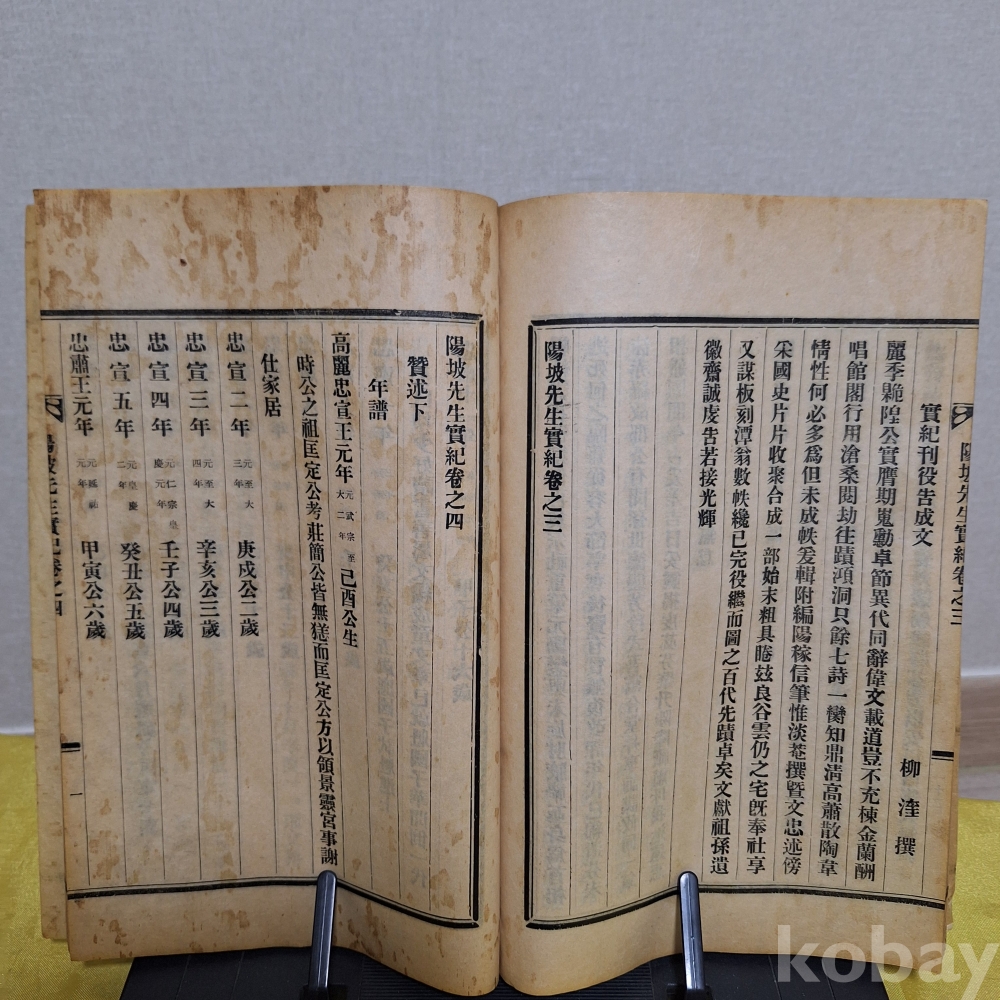 陽坡先生實紀卷之三
實紀刊役告成文
柳湰撰
麗季臲隉公實膺期嵬勳卓節異代同辭偉文載道豈不充棟金蘭酬
唱館閣行用滄桑閱劫往蹟澒洞只餘七詩一臠知鼎淸高蕭散陶韋
情性何必多爲但未成帙爰輯附編陽稼信筆惟淡菴撰曁文忠述傍
采國史片片收聚合成一部始末粗具睠玆良谷雲仍之宅旣奉社享
又謀板刻潭翁數帙纔已完役繼而圖之百代先蹟卓矣文獻祖孫遺
徽齋誠虔告若接光輝
陽坡先生實紀卷之三
陽坡先生實紀卷之四
贊述下
年譜
高麗忠宣王元年元武宗至大二年己酉公生
時公之祖匡定公考莊簡公皆無恙而匡定公方以領景靈宮事謝
仕家居
忠宣二年元至大三年庚戌公二歲
忠宣三年元至大四年辛亥公三歲
忠宣四年元仁宗皇慶元年壬子公四歲
忠宣五年元皇慶二年癸丑公五歲
忠肅王元年元延祐元年甲寅公六歲
陽坡先生實紀卷之四
一
kobay